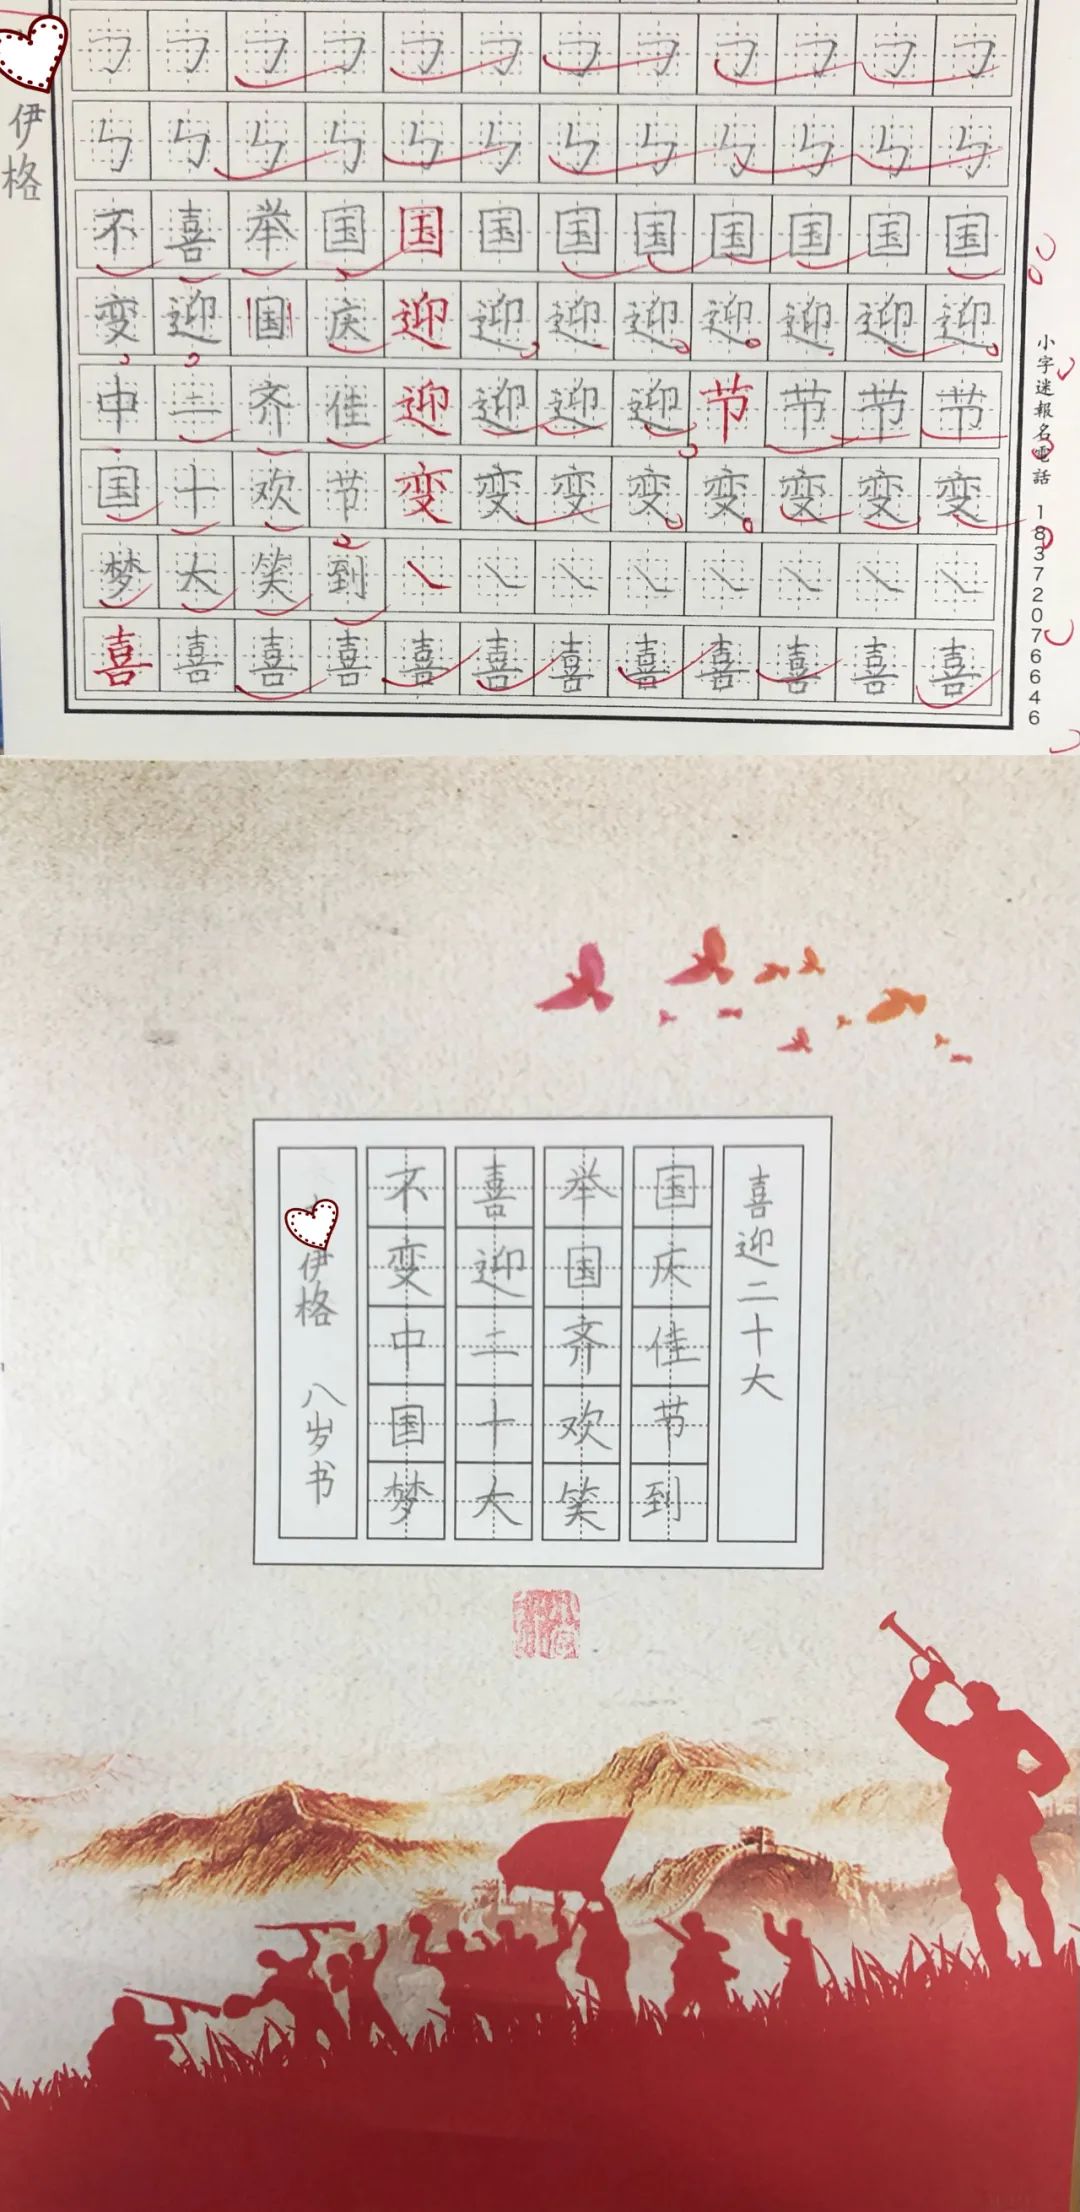 伊格
不喜举国国国国国国国国国
变迎国庆迎迎迎迎迎迎迎迎
中二齐佳迎迎迎迎节节节节
国十欢节变变变变变变变变
梦大笑到
喜喜喜喜喜喜喜喜喜喜喜喜
小字迷報名電話 18372076646
喜迎二十大
国庆佳节到
举国齐欢笑
喜迎二十大
不变中国梦
伊格 八岁书